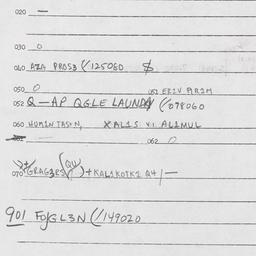 020 —
030 0
040 AZA PROSB (/125060 $
050 0 051 ERIV PIRIM
052 Q—AP QGLE LAUNDY (/078060
060 HOMINTASIN, XALIS VI ALIMUL
061 — 062 0
070 GRAG3RS (Q4) + KALIKOTKI Q4 / —
901 FOJGL3N (/149020